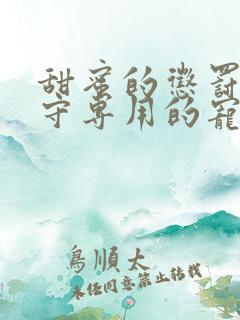 甜蜜的懲罰
守專用的寵
鳥順太
未經同意禁止轉載